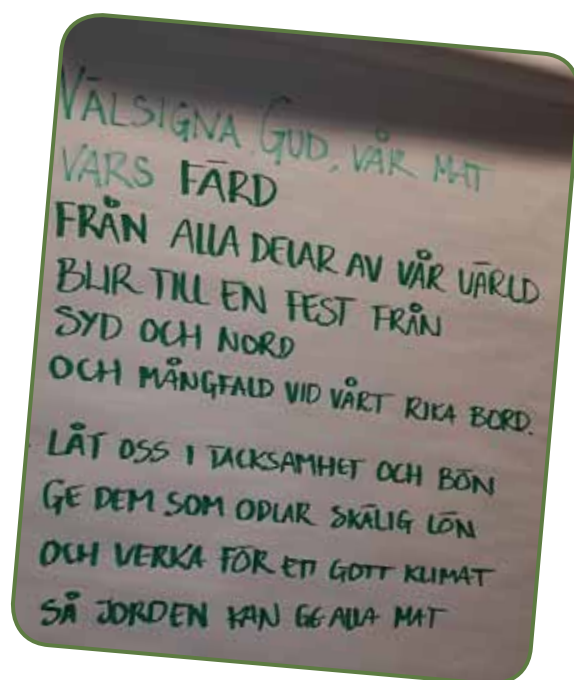 VÄLSIGNA GUD, VÅR MAT
VARS FÄRD
FRÅN ALLA DELAR AV VÅR VÄRLD
BLIR TILL EN FEST FRÅN
SYD OCH NORD
OCH MÅNGFALD VID VÅRT RIKA BORD.
LÅT OSS I TACKSAMHET OCH BÖN
GE DEM SOM ODLAR SKÄLIG LÖN
OCH VERKA FÖR ETT GOTT KLIMAT
SÅ JORDEN KAN GE ALLA MAT